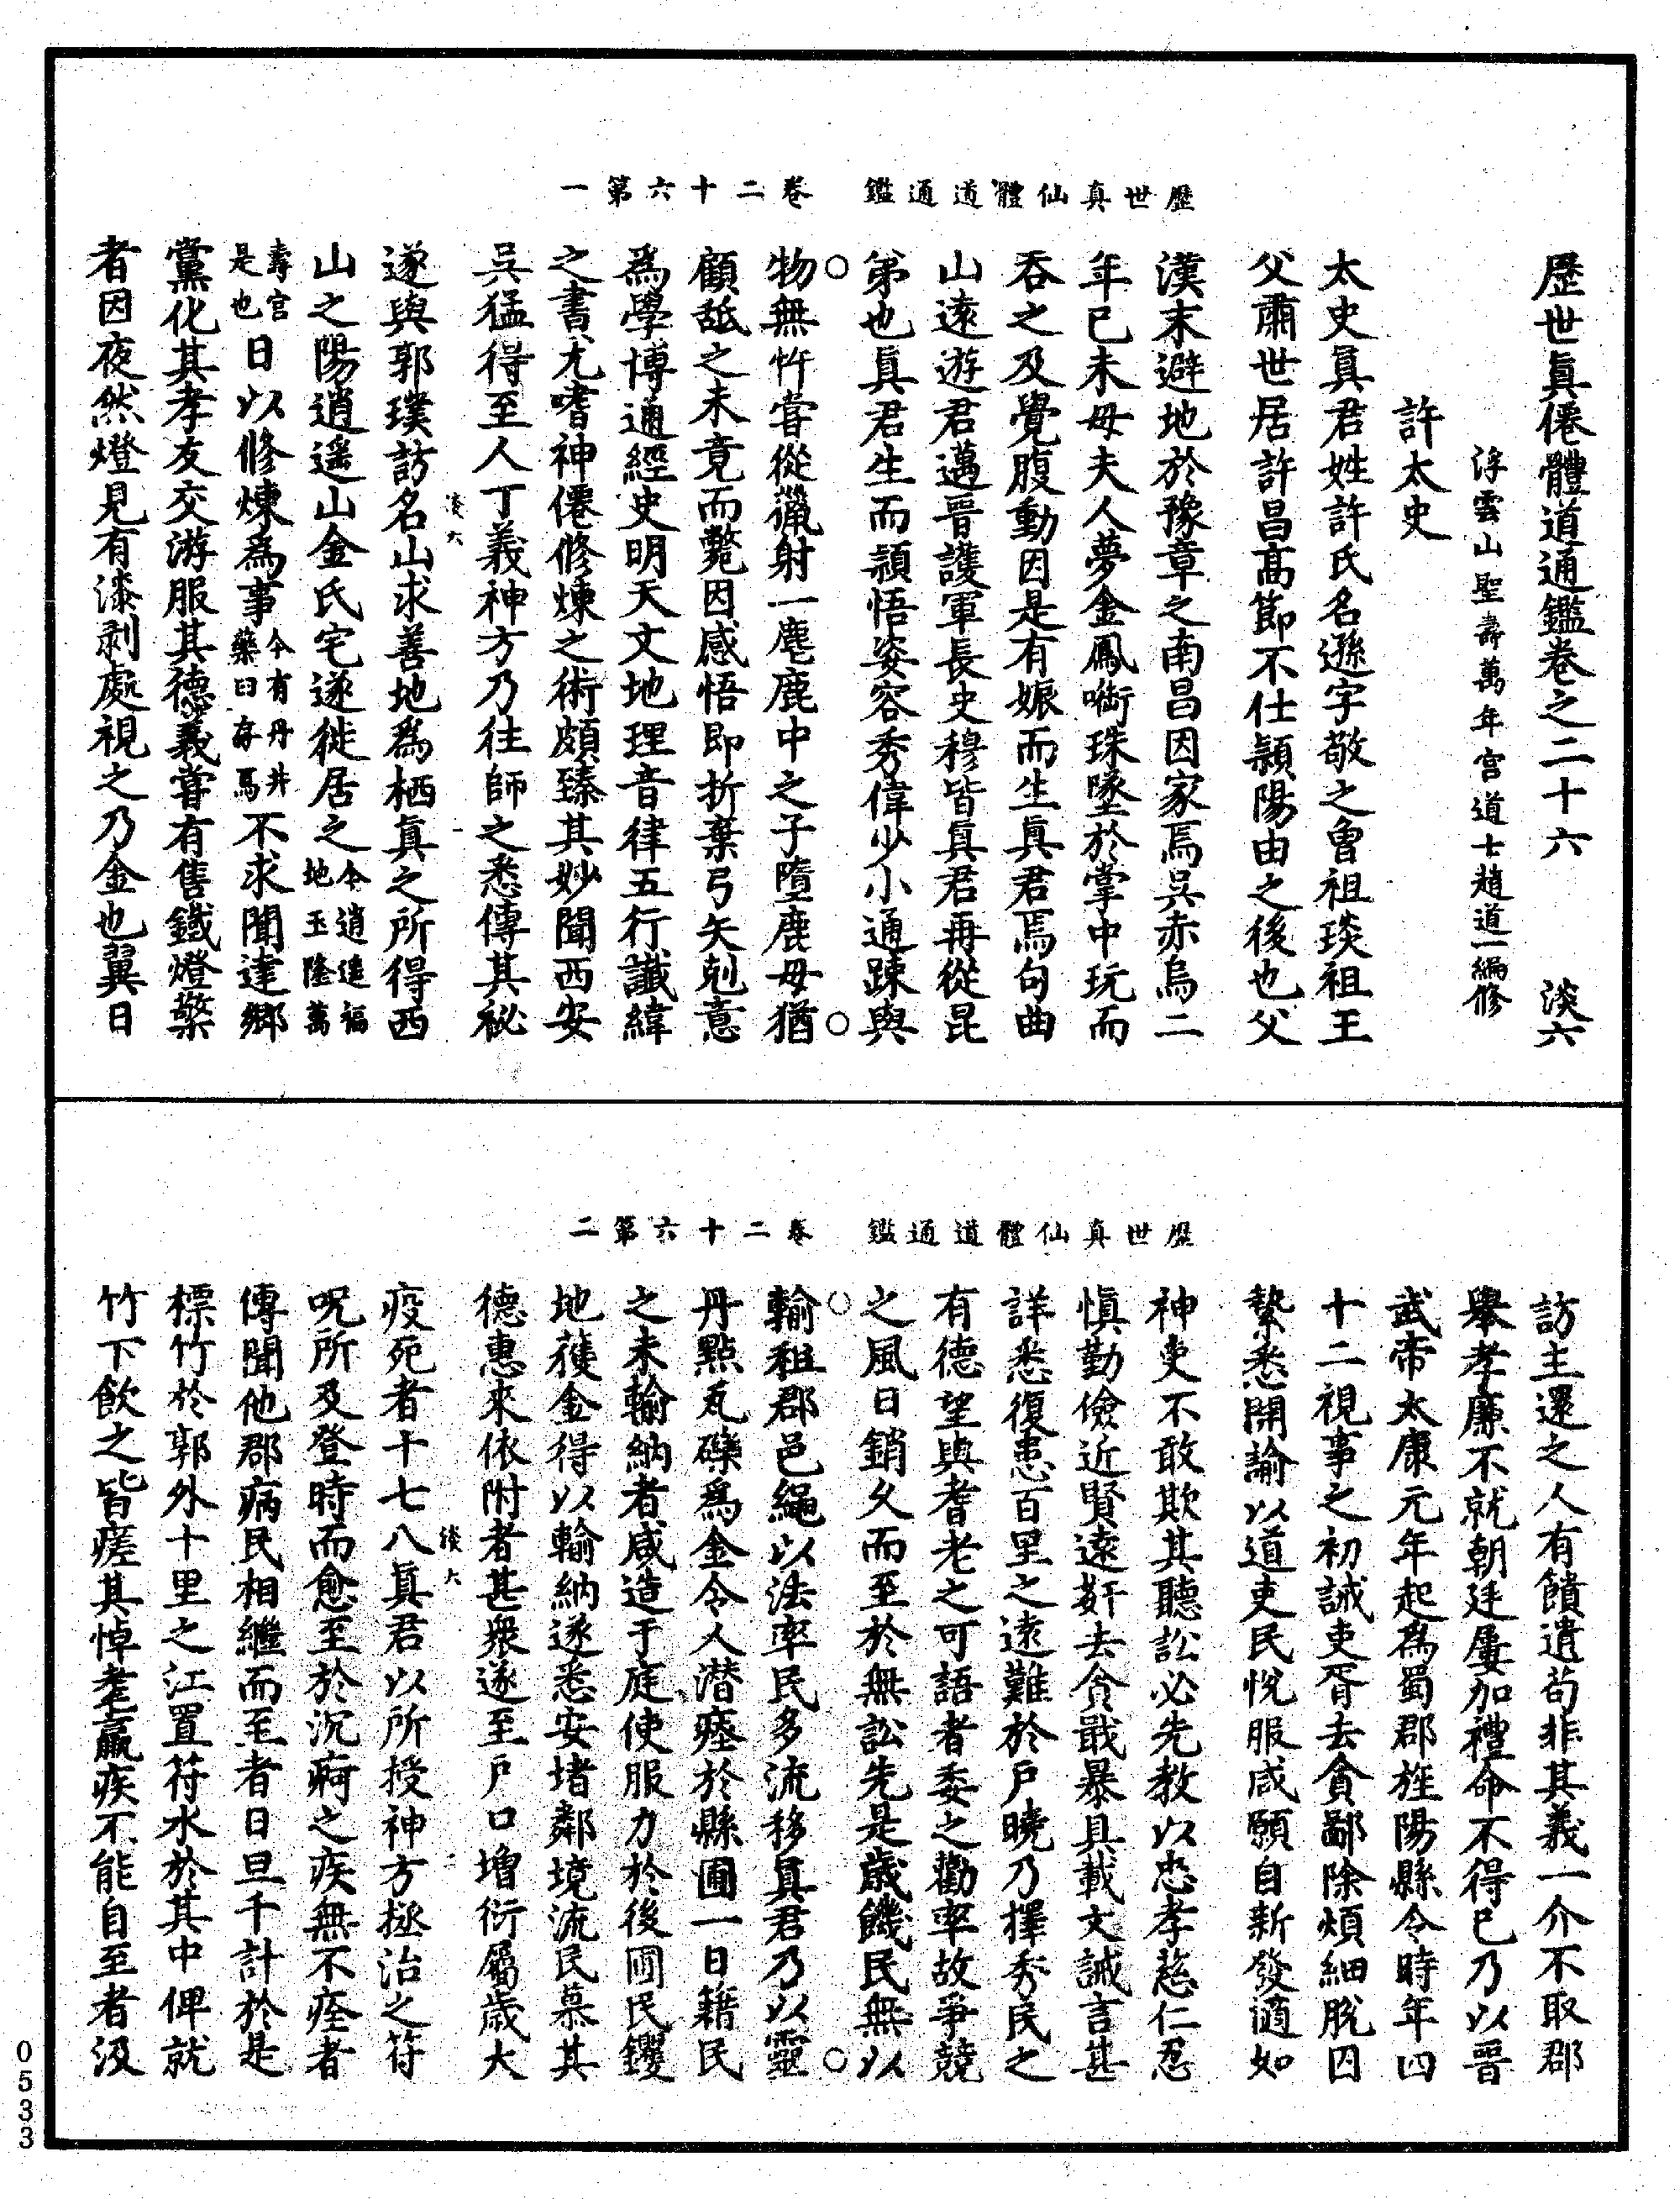 歷世真仙體道通鑑 卷二十六第一
歷世眞僊體道通鑑卷之二十六 淡六
浮雲山聖壽萬年宮道士趙道一編修
許太史
太史眞君姓許氏名遜字敬之曾祖琰祖玉
父肅世居許昌高節不仕潁陽由之後也父
漢末避地於豫章之南昌因家焉吳赤烏二
年已未母夫人夢金鳳啣珠墜於掌中玩而
吞之及覺腹動因是有娠而生眞君焉句曲
山遠遊君邁晉護軍長史穆皆眞君再從昆
弟也眞君生而頴悟姿容秀偉少小通踈與
物無忤甞從獵射一麀鹿中之子墮鹿母猶
顧舐之未竟而斃因感悟即折棄弓矢剋意
爲學博通經史明天文地理音律五行讖緯
之書尤嗜神僊修煉之術頗臻其妙聞西安
吳猛得至人丁義神方乃往師之悉傳其祕
淡六 一
遂與郭璞訪名山求善地爲栖眞之所得西
山之陽逍遥山金氏宅遂徙居之今逍遥福地玉隆萬
壽宫是也日以修煉爲事今有丹井藥臼存焉不求聞達鄉
黨化其孝友交游服其德義甞有售鐵燈檠
者因夜然燈見有漆剥處視之乃金也翼日
歷世真仙體道通鑑 卷二十六第二
訪主還之人有饋遺苟非其義一介不取郡
舉孝廉不就朝廷屢加禮命不得已乃以晉
武帝太康元年起爲蜀郡旌陽縣令時年四
十二視事之初誡吏胥去貪鄙除煩細脫囚
縶悉開諭以道吏民悅服咸願自新發適如
神吏不敢欺其聽訟必先教以忠孝慈仁忍
愼勤儉近賢遠奸去貪戢暴具載文誡言甚
詳悉復患百里之遠難於戶曉乃擇秀民之
有德望與耆老之可語者委之勸率故爭競
之風日銷久而至於無訟先是歲饑民無以
輸租郡邑繩以法率民多流移眞君乃以靈
丹點瓦礫爲金令人潜瘞於縣圃一日籍民
之未輸納者咸造于庭使服力於後圃民钁
地獲金得以輸納遂悉安堵鄰境流民慕其
德惠來依附者甚衆遂至戶口增衍屬歲大
淡六 二
疫死者十七八眞君以所授神方拯治之符
呪所及登時而愈至於沉痾之疾無不痊者
傳聞他郡病民相繼而至者日旦千計於是
標竹於郭外十里之江置符水於其中俾就
竹下飲之皆瘥其悼耄羸疾不能自至者汲
0533